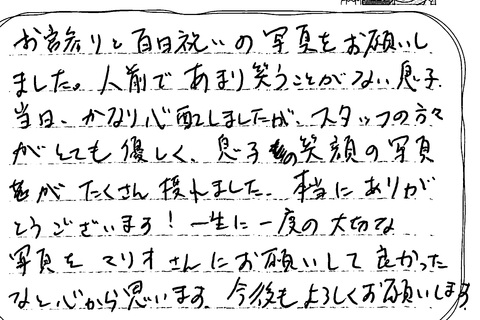 お宮参りと百日祝いの写真をお願いし
ました。人前であまり笑うことがない息子.
当日、かなり心配しましたが、スタッフの方々
がとても優しく、息子の笑顔の写真
がたくさん撮れました。本当にありが
とうございます！一生に一度の大切な
写真をマリオさんにお願いして良かった
なと心から思います。今後もよろしくお願いします